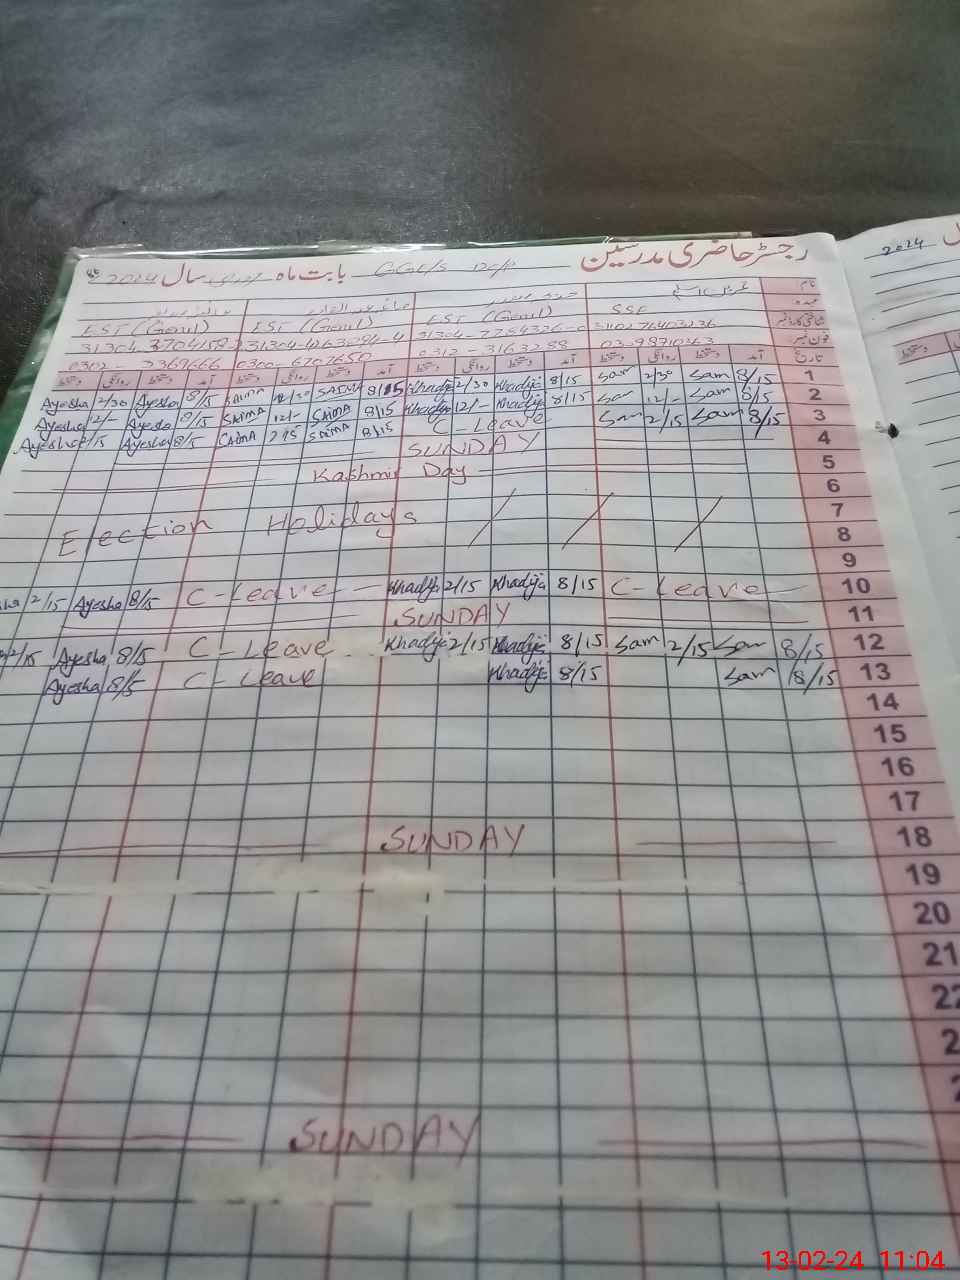 رجسٹر حاضری مدرسین بابت ماہ سال 2024
2024
نام
عہدہ SSE EST (Genl) EST (Genl) EST (Genl)
شناختی کارڈ نمبر
فون نمبر 0312-3163288 0300-6707650
تاریخ آمد دستخط روانگی دستخط آمد دستخط روانگی دستخط آمد دستخط روانگی دستخط آمد دستخط روانگی دستخط
1 8/15 Sam 2/30 Sam 8/15 Khadija 2/30 Khadija 8/15 SAIMA SAIMA 8/15 Ayesha 2/30 Ayesha
2 8/15 Sam 12/- Sam 8/15 Khadija 12/- Khadija 8/15 SAIMA 12/- SAIMA 8/15 Ayesha Ayesha
3 8/15 Sam 2/15 Sam C-Leave 8/15 SAIMA 2/15 SAIMA 8/15 Ayesha Ayesha
4 SUNDAY
5 Kashmir Day
6
7 Election Holidays
8
9
10 C-Leave 8/15 Khadija 2/15 Khadija C-Leave 8/15 Ayesha 2/15
11 SUNDAY
12 8/15 Sam 2/15 Sam 8/15 Khadija 2/15 Khadija C-Leave 8/15 Ayesha 2/15
13 8/15 Sam 8/15 Khadija C-Leave 8/15 Ayesha
14
15
16
17
18 SUNDAY
19
20
21
22
SUNDAY
13-02-24 11:04